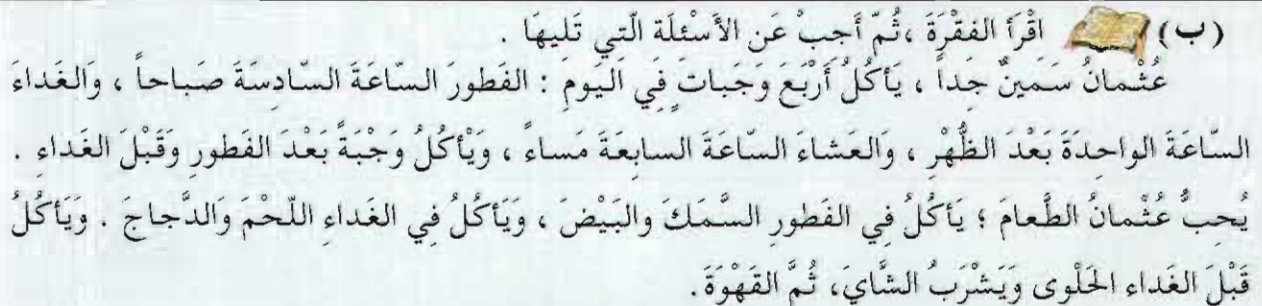 (ب) اقْرَأ الفقْرَةَ ،ثُمّ أَجِبْ عَن الأَسْئلَة الّتِي تَليهَا .
عُثْمانُ سَمينٌ جَداً ، يَأكُلُ أَرْبَعَ وَجَباتٍ فِي اَليَومِ : الفَطورَ السّاعَةَ السّادِسَةَ صَباحاً ، وَالغَداءَ
السّاعَةَ الواحِدَةَ بَعْدَ الظُّهْرِ ، وَالعَشاءَ السّاعَةَ السابِعَةَ مَساءً ، وَيَأْكُلُ وَجْبَةً بَعْدَ الفَطورِ وَقَبْلَ الغَداءِ .
يُحِبُّ عُثْمانُ الطَّعامَ ؛ يَأكُلُ في الفَطورِ السَّمَكَ والبَيْضَ ، وَيَأكُلُ فِي الغَداءِ اللّحْمَ وَالدَّجاجَ . وَيَأكُلُ
قَبْلَ الغَداءِ الحَلْوى وَيَشْرَبُ الشَّايَ، ثُمَّ القَهْوَةَ .